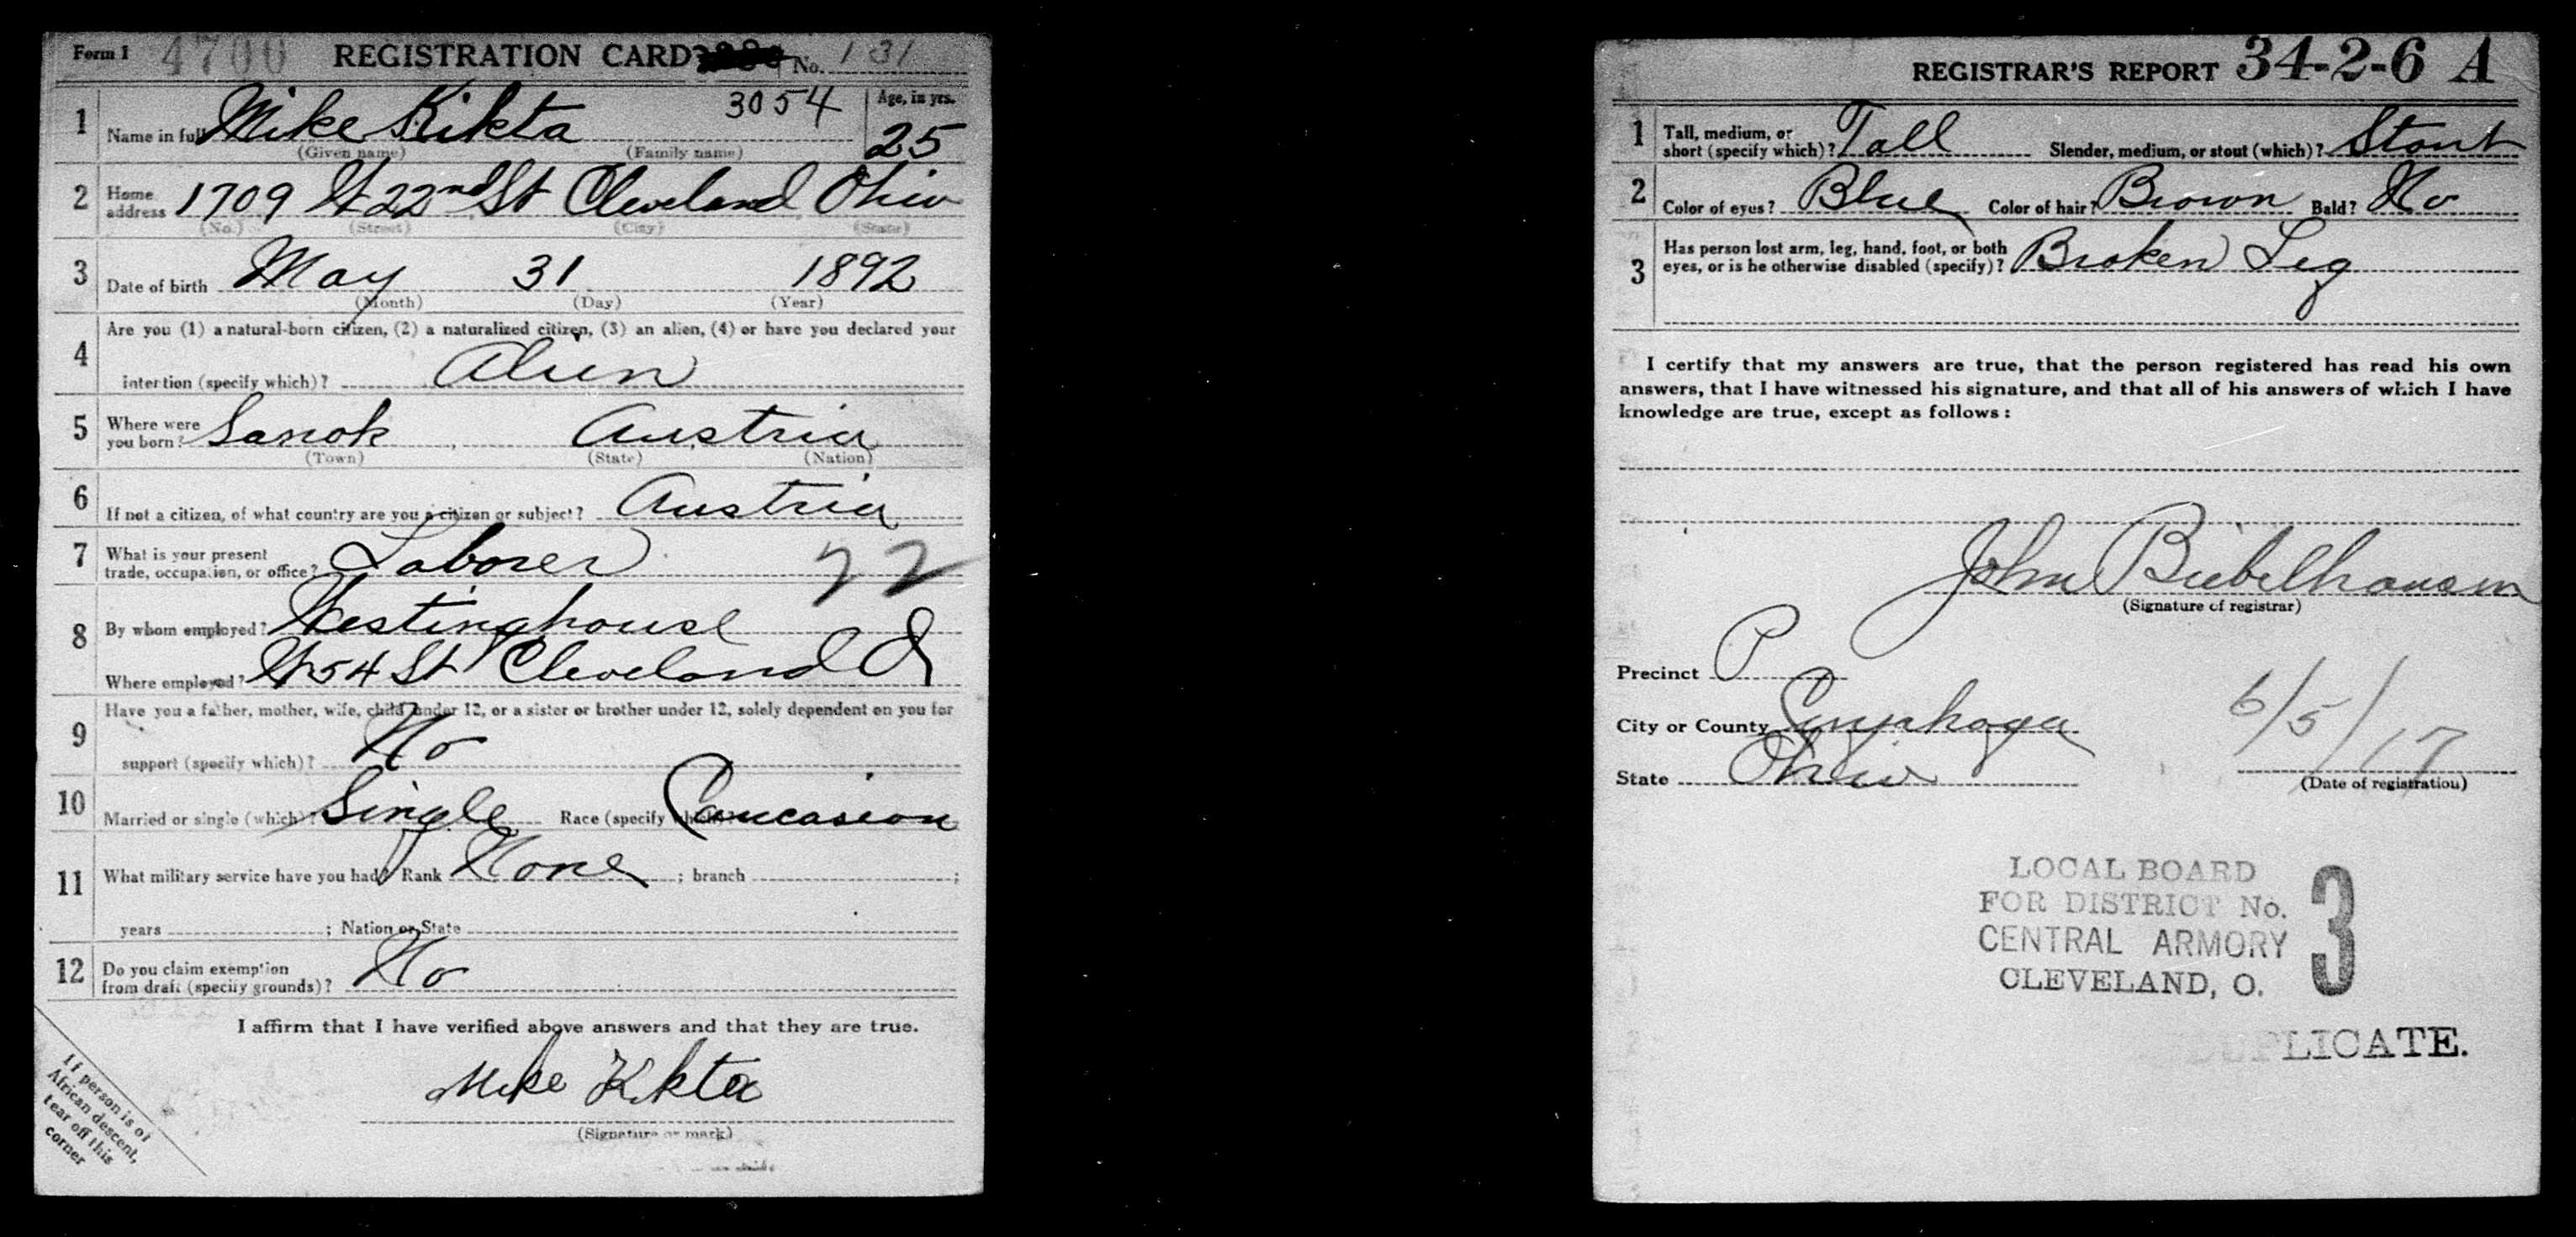 Form 1 4700 REGISTRATION CARD No. 131
1 Name in full Mike Kikta 3054 Age, in yrs. 25
(Given name) (Family name)
2 Home address 1709 W 22nd St Cleveland Ohio
(No.) (Street) (City) (State)
3 Date of birth May 31 1892
(Month) (Day) (Year)
4 Are you (1) a natural-born citizen, (2) a naturalized citizen, (3) an alien, (4) or have you declared your
intention (specify which)? Alien
5 Where were you born? Sanok, Austria
(Town) (State) (Nation)
6 If not a citizen, of what country are you a citizen or subject? Austria
7 What is your present trade, occupation, or office? Laborer 22
8 By whom employed? Westinghouse
Where employed? W 54 St Cleveland O
9 Have you a father, mother, wife, child under 12, or a sister or brother under 12, solely dependent on you for
support (specify which)? No
10 Married or single (which)? Single Race (specify which)? Caucasion
11 What military service have you had? Rank None ; branch ;
years ; Nation or State
12 Do you claim exemption from draft (specify grounds)? No
I affirm that I have verified above answers and that they are true.
Mike Kikta
(Signature or mark)
If person is of
African descent,
tear off this
corner
REGISTRAR'S REPORT 34-2-6 A
1 Tall, medium, or short (specify which)? Tall Slender, medium, or stout (which)? Stout
2 Color of eyes? Blue Color of hair? Brown Bald? No
3 Has person lost arm, leg, hand, foot, or both
eyes, or is he otherwise disabled (specify)? Broken Leg
I certify that my answers are true, that the person registered has read his own
answers, that I have witnessed his signature, and that all of his answers of which I have
knowledge are true, except as follows:
John Biebelhausen
(Signature of registrar)
Precinct P
City or County Cuyahoga
State Ohio
6/5/17
(Date of registration)
LOCAL BOARD
FOR DISTRICT No. 3
CENTRAL ARMORY
CLEVELAND, O.
DUPLICATE.